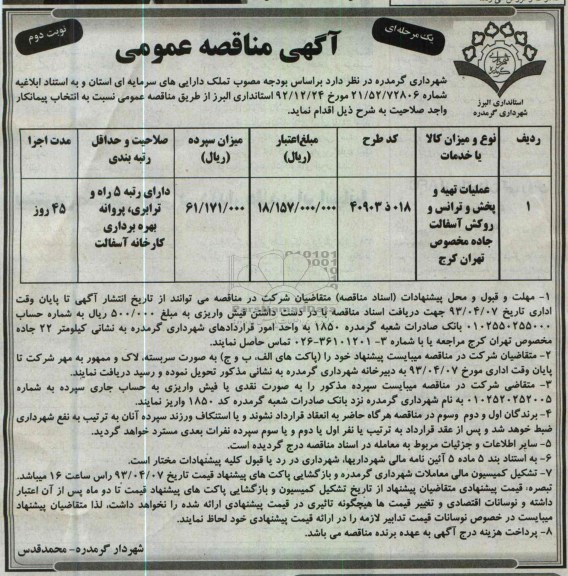 نوبت دوم
یک مرحله ای
آگهی مناقصه عمومی
استانداری البرز
شهرداری گرمدره
شهرداری گرمدره در نظر دارد براساس بودجه مصوب تملک دارایی های سرمایه ای استان و به استناد ابلاغیه
شماره ۲۱/۵۲/۷۲۸۰۶ مورخ ۹۲/۱۲/۲۴ استانداری البرز از طریق مناقصه عمومی نسبت به انتخاب پیمانکار
واجد صلاحیت به شرح ذیل اقدام نماید.
ردیف	نوع و میزان کالا یا خدمات	کد طرح	مبلغ اعتبار (ریال)	میزان سپرده (ریال)	صلاحیت و حداقل رتبه بندی	مدت اجرا
۱	عملیات تهیه و پخش و ترانس و روکش آسفالت جاده مخصوص تهران کرج	۰۱۸ ذ ۴۰۹۰۳	۱۸/۱۵۷/۰۰۰/۰۰۰	۶۱/۱۷۱/۰۰۰	دارای رتبه ۵ راه و ترابری، پروانه بهره برداری کارخانه آسفالت	۴۵ روز
۱- مهلت و قبول و محل پیشنهادات (اسناد مناقصه) متقاضیان شرکت در مناقصه می توانند از تاریخ انتشار آگهی تا پایان وقت
اداری تاریخ ۹۳/۰۴/۰۷ جهت دریافت اسناد مناقصه با در دست داشتن فیش واریزی به مبلغ ۵۰۰/۰۰۰ ریال به شماره حساب
۰۱۰۲۵۵۰۲۵۵۰۰۰ بانک صادرات شعبه گرمدره ۱۸۵۰ به واحد امور قراردادهای شهرداری گرمدره به نشانی کیلومتر ۲۲ جاده
مخصوص تهران کرج مراجعه یا با شماره ۳- ۳۶۱۰۱۲۰۱-۰۲۶ تماس حاصل نمایند.
۲- متقاضیان شرکت در مناقصه میبایست پیشنهاد خود را (پاکت های الف، ب و ج) به صورت سربسته، لاک و ممهور به مهر شرکت تا
پایان وقت اداری مورخ ۹۳/۰۴/۰۷ به دبیرخانه شهرداری گرمدره به نشانی مذکور تحویل نموده و رسید دریافت نمایند.
۳- متقاضی شرکت در مناقصه میبایست سپرده مذکور را به صورت نقدی یا فیش واریزی به حساب جاری سپرده به شماره
۰۱۰۲۵۲۰۲۵۲۰۰۵ به نام شهرداری گرمدره نزد بانک صادرات شعبه گرمدره کد ۱۸۵۰ واریز نمایند.
۴- برندگان اول و دوم وسوم در مناقصه هرگاه حاضر به انعقاد قرارداد نشوند و یا استنکاف ورزند سپرده آنان به ترتیب به نفع شهرداری
ضبط خواهد شد و پس از عقد قرارداد به ترتیب یا نفر اول یا دوم و یا سوم سپرده نفرات بعدی مسترد خواهد گردید.
۵- سایر اطلاعات و جزئیات مربوط به معامله در اسناد مناقصه درج گردیده است.
۶- به استناد بند ۵ ماده ۵ آئین نامه مالی شهرداریها، شهرداری در رد یا قبول کلیه پیشنهادات مختار است.
۷- تشکیل کمیسیون مالی معاملات شهرداری گرمدره و بازگشایی پاکت های پیشنهاد قیمت تاریخ ۹۳/۰۴/۰۷ راس ساعت ۱۶ میباشد.
تبصره: قیمت پیشنهادی متقاضیان پیشنهاد از تاریخ تشکیل کمیسیون و بازگشایی پاکت های پیشنهاد قیمت تا دو ماه پس از آن اعتبار
داشته و نوسانات اقتصادی و تغییر قیمت ها هیچگونه تاثیری در قیمت پیشنهادی ارائه شده را نخواهد داشت، لذا متقاضیان پیشنهاد
میبایست در خصوص نوسانات قیمت تدابیر لازمه را در ارائه قیمت پیشنهادی خود لحاظ نمایند.
۸- پرداخت هزینه درج آگهی به عهده برنده مناقصه می باشد.
شهردار گرمدره- محمدقدس